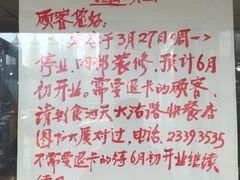 顾客您好:
于3月27日(周一)
停业,内部装修,预计6月
初开业,需要退卡的顾客,
请到食为天大沽路快餐店
图书大厦对过,电话:23393535
不需要退卡的待6月初开业继续